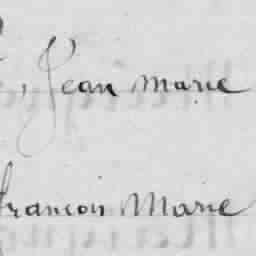 , Jean Marie
françois Marie